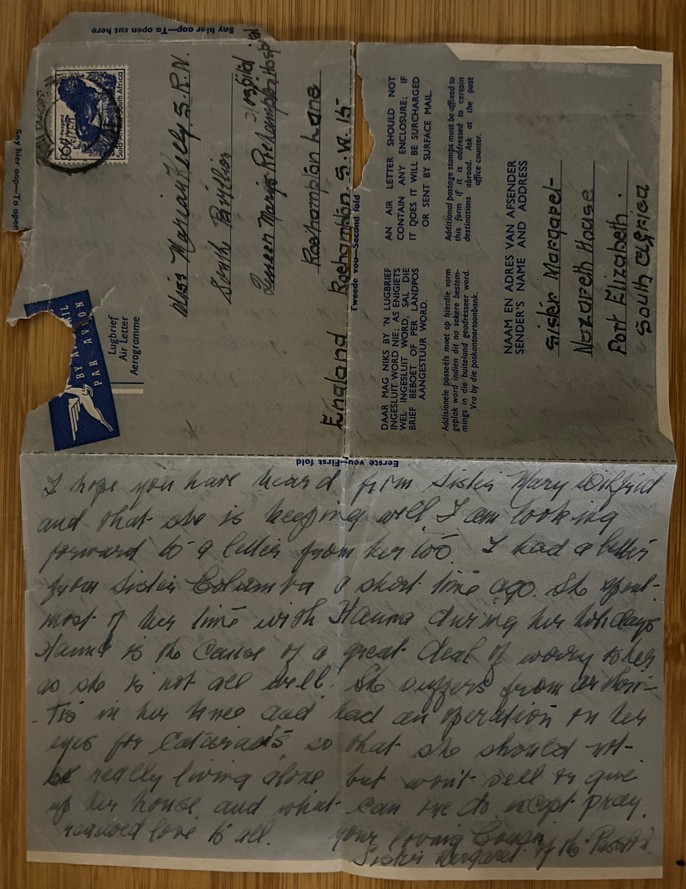 Sny hier oop—To open cut here
Sny hier oop—To open
South Africa
BY AIR MAIL
PAR AVION
Lugbrief
Air Letter
Aerogramme
Miss Marian Kelly S.R.N.
Smith Pavilion
Queen Mary's Roehampton Hospital
Roehampton Lane
Roehampton S.W. 15
England
Tweede vou—Second fold
DAAR MAG NIKS BY 'N LUGBRIEF
INGESLUIT WORD NIE; AS ENIGIETS
WEL INGESLUIT WORD, SAL DIE
BRIEF BEBOET OF PER LANDPOS
AANGESTUUR WORD.
AN AIR LETTER SHOULD NOT
CONTAIN ANY ENCLOSURE; IF
IT DOES IT WILL BE SURCHARGED
OR SENT BY SURFACE MAIL.
Addisionele posseëls moet op hierdie vorm
geplak word indien dit na sekere bestem-
mings in die buiteland geadresseer word.
Vra by die poskantoortoonbank.
Additional postage stamps must be affixed to
this form if it is addressed to certain
destinations abroad. Ask at the post
office counter.
NAAM EN ADRES VAN AFSENDER
SENDER'S NAME AND ADDRESS
Sister Margaret
Nazareth House
Port Elizabeth
South Africa
Eerste vou—First fold
I hope you have heard from Sister Mary Wilfrid
and that she is keeping well. I am looking
forward to a letter from her too I had a letter
from Sister Columba a short time ago. She spent
most of her time with Hanna during her holidays
Hanna is the cause of a great deal of worry to her
as she is not all well. She suffers from arthri-
tis in her knee and had an operation on her
eyes for Cataracts so that she should not
be really living alone but won't sell or give
up her house and what can one do except pray.
love to all. Your loving Cousin
Sister Margaret of the